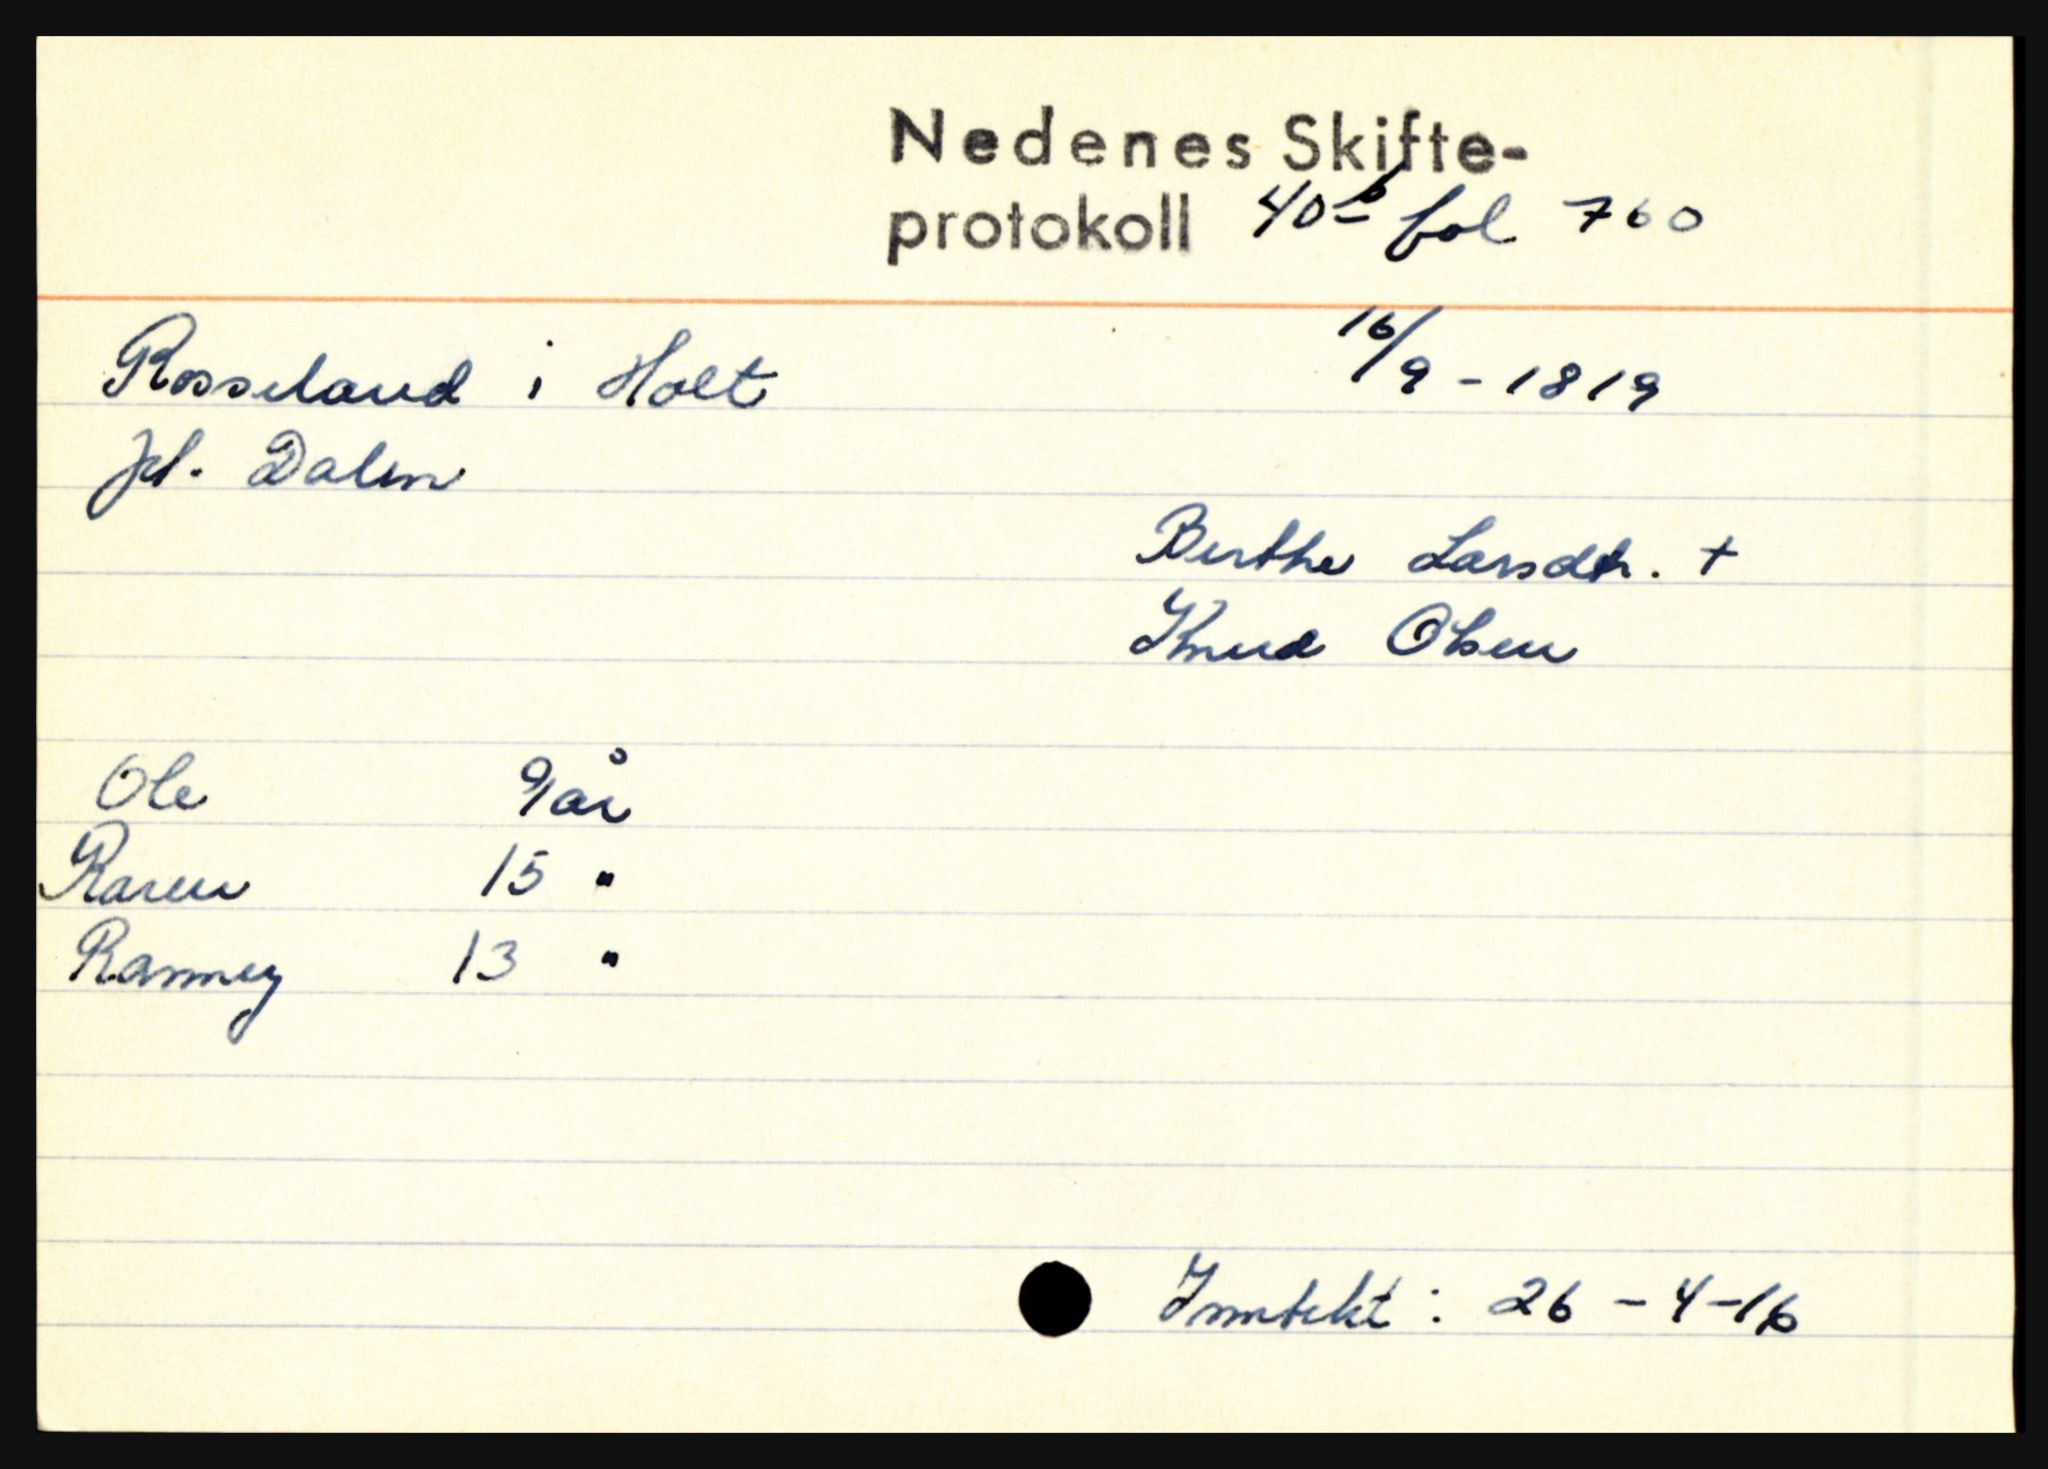 Nedenes Skifte-
protokoll 40b fol 760
Rosseland i Holt 16/9-1819
pl. Dalen
Berthe Larsdtr. +
Knud Olsen
Ole 9 år
Karen 15 "
Ranney 13 "
Inntekt: 26-4-16